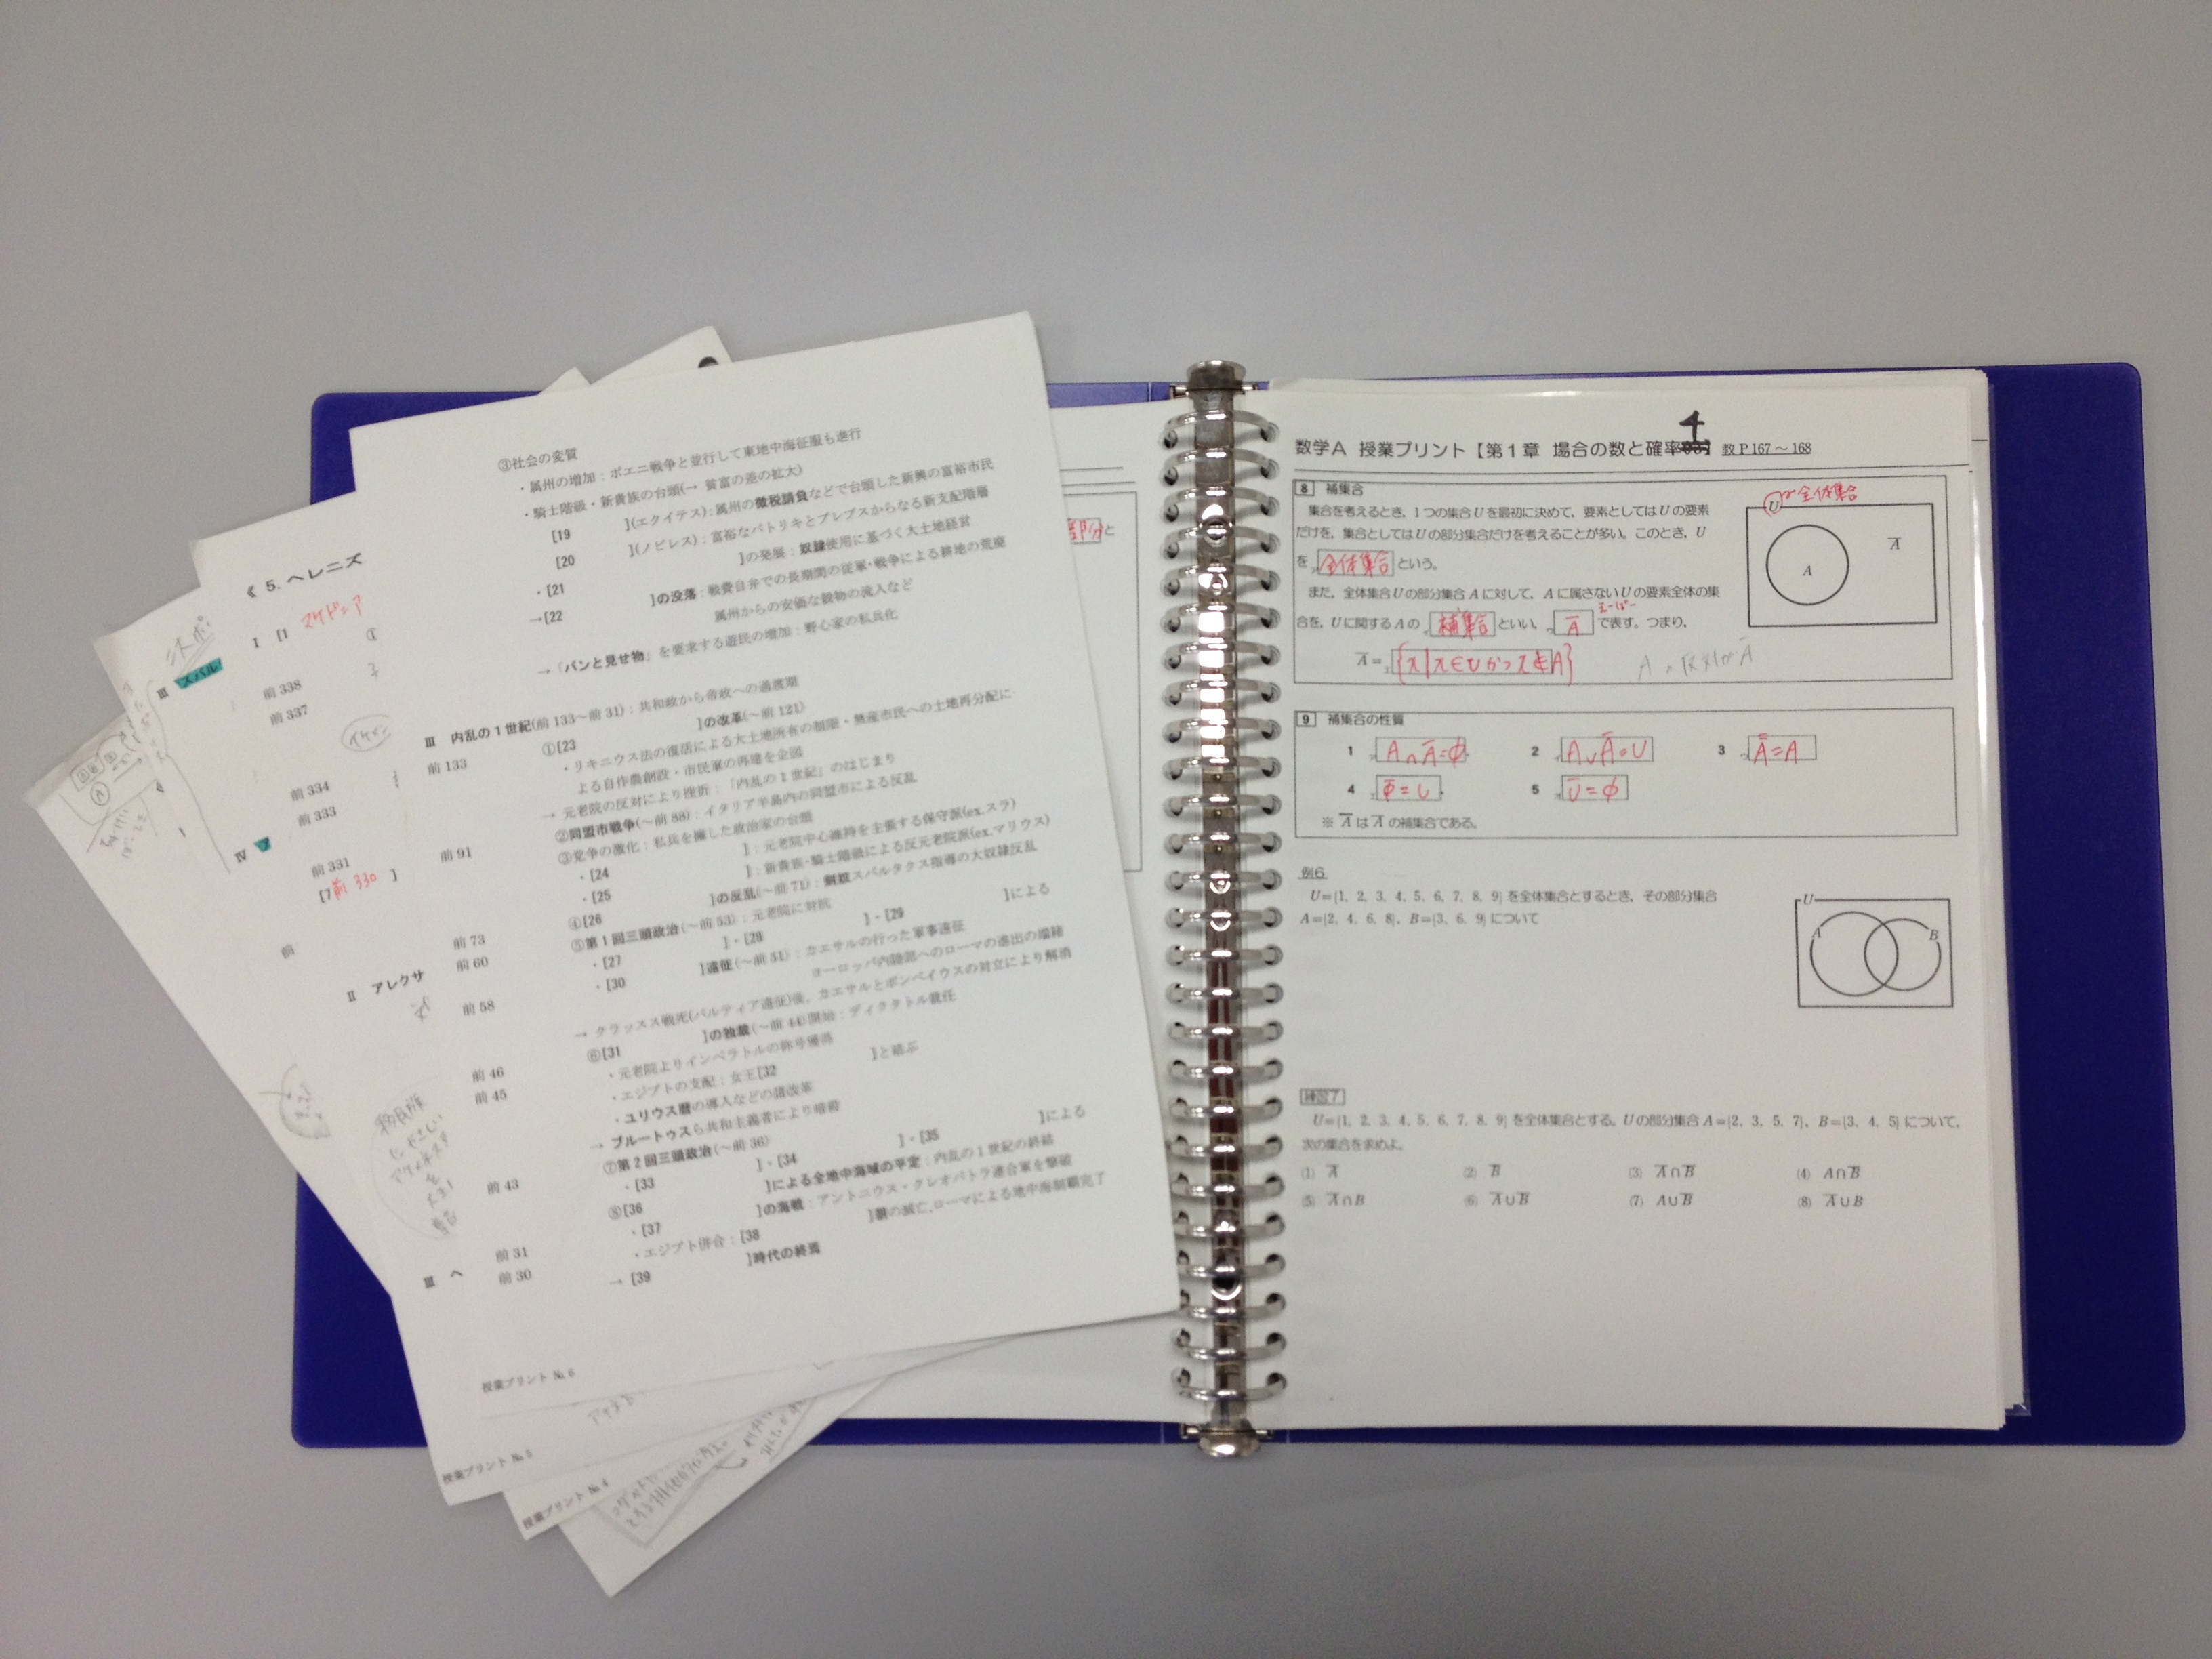 ③社会の変質
・属州の増加：ポエニ戦争と並行して東地中海征服も進行
・騎士階級・新貴族の台頭(→ 貧富の差の拡大)
[19 ](エクイテス)：属州の徴税請負などで台頭した新興の富裕市民
[20 ](ノビレス)：富裕なパトリキとプレブスからなる新支配階層
・[21 ]の発展：奴隷使用に基づく大土地経営
→[22 ]の没落：戦費自弁での長期間の従軍・戦争による耕地の荒廃
属州からの安価な穀物の流入など
→「パンと見せ物」を要求する遊民の増加：野心家の私兵化
Ⅲ 内乱の1世紀(前133～前31)：共和政から帝政への過渡期
前133 ①[23 ]の改革(～前121)
・リキニウス法の復活による大土地所有の制限・無産市民への土地再分配に
よる自作農創設・市民軍の再建を企図
→ 元老院の反対により挫折：「内乱の1世紀」のはじまり
前91 ②同盟市戦争(～前88)：イタリア半島内の同盟市による反乱
③党争の激化：私兵を擁した政治家の台頭
・[24 ]：元老院中心維持を主張する保守派(ex.スラ)
・[25 ]：新貴族・騎士階級による反元老院派(ex.マリウス)
前73 ④[26 ]の反乱(～前71)：剣奴スパルタクス指導の大奴隷反乱
前60 ⑤第1回三頭政治(～前53)：元老院に対抗
・[27 ]・[28 ]・[29 ]による
前58 ・[30 ]遠征(～前51)：カエサルの行った軍事遠征
ヨーロッパ内陸部へのローマの進出の端緒
→ クラッスス戦死(パルティア遠征)後、カエサルとポンペイウスの対立により解消
前46 ⑥[31 ]の独裁(～前44)開始：ディクタトル就任
前45 ・元老院よりインペラトルの称号獲得
・エジプトの支配：女王[32 ]と結ぶ
・ユリウス暦の導入などの諸改革
→ ブルートゥスら共和主義者により暗殺
前43 ⑦第2回三頭政治(～前36)
・[33 ]・[34 ]・[35 ]による
⑧[36 ]による全地中海域の平定：内乱の1世紀の終結
前31 ・[37 ]の海戦：アントニウス・クレオパトラ連合軍を撃破
前30 ・エジプト併合：[38 ]朝の滅亡,ローマによる地中海制覇完了
→ [39 ]時代の終焉
授業プリント №6
《 5. ヘレニズ
Ⅰ [1 マケドニア
前338
前337
前334
前333
前331
[7前330 ]
前
Ⅱ アレクサ
Ⅲ ヘ
授業プリント №5
Ⅲ スパル
Ⅳ
授業プリント №4
部分と
数学A 授業プリント【第1章 場合の数と確率 4】 教P167～168
8 補集合
U 全体集合
A
A̅
集合を考えるとき，1つの集合Uを最初に決めて，要素としてはUの要素
だけを，集合としてはUの部分集合だけを考えることが多い。このとき，U
を 全体集合 という。
また，全体集合Uの部分集合Aに対して，Aに属さないUの要素全体の集
合を，Uに関するAの 補集合 といい， A̅ で表す。つまり，
えーばー
A̅={x|x∈Uかつx∉A}
A の反対が A̅
9 補集合の性質
1 A∩A̅=φ 2 A∪A̅=U 3 A̿=A
4 φ̅=U 5 U̅=φ
※ A̅はAの補集合である。
例6
U={1, 2, 3, 4, 5, 6, 7, 8, 9}を全体集合とするとき，その部分集合
A={2, 4, 6, 8}，B={3, 6, 9}について
U
A
B
練習7
U={1, 2, 3, 4, 5, 6, 7, 8, 9}を全体集合とする。Uの部分集合A={2, 3, 5, 7}，B={3, 4, 5}について，
次の集合を求めよ。
(1) A̅ (2) B̅ (3) A̅∩B̅ (4) A∩B̅
(5) A̅∩B (6) A̅∪B̅ (7) A∪B̅ (8) A̅∪B